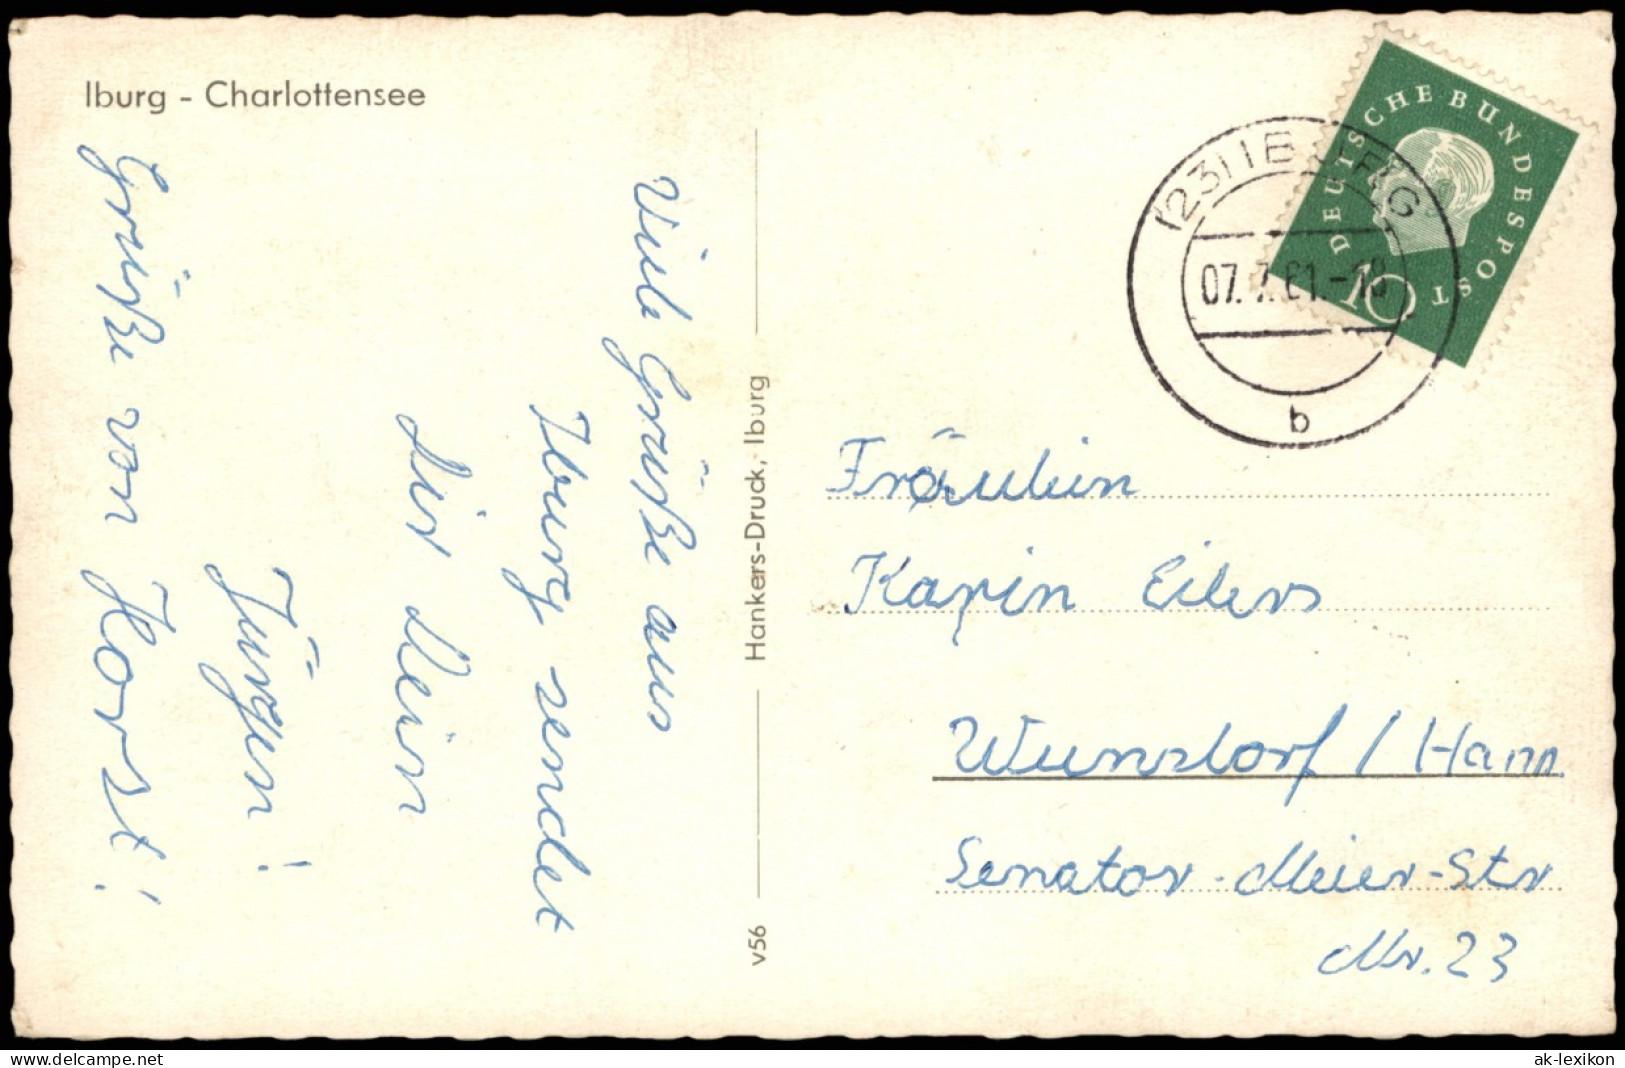 Iburg - Charlottensee
Viele Grüße aus
Iburg sendet
Dir Dein
Jürgen!
Grüße von Horst!
Hankers-Druck, Iburg
v56
DEUTSCHE BUNDESPOST
10
(23) IBURG
07.7.61.-18
b
Fräulein
Karin Eilers
Wunstorf / Hann.
Senator-Meier-Str
Nr. 23
www.delcampe.net
ak-lexikon